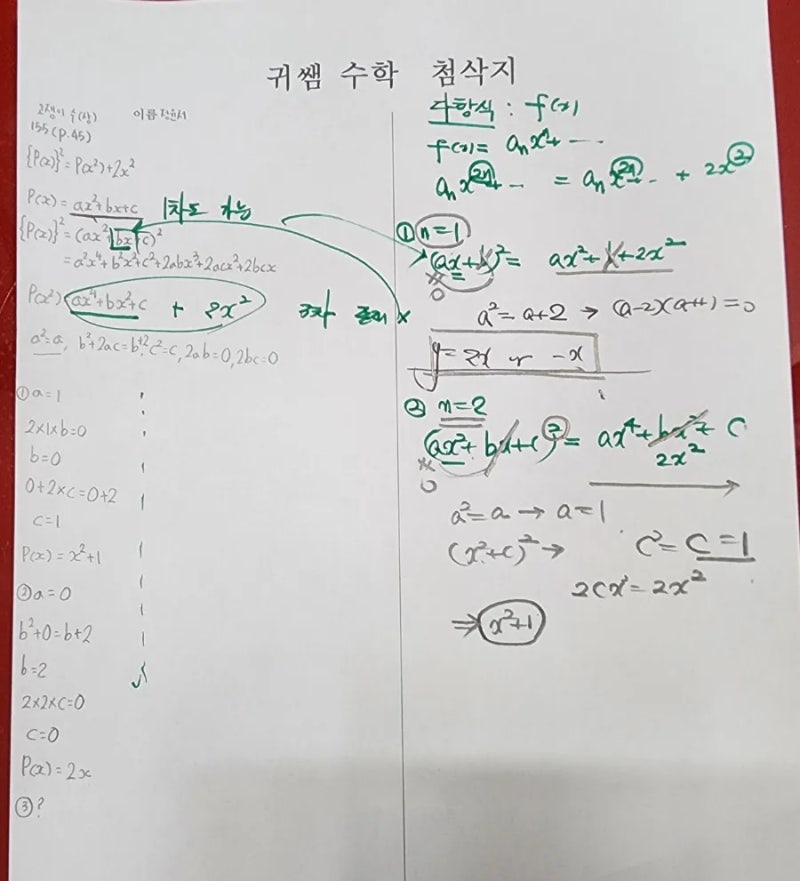 귀쌤 수학 첨삭지
고쟁이 수(상) 이름
155(P.45)
{P(x)}² = P(x²)+2x²
P(x) = ax²+bx+c 1차도 가능
{P(x)}² = (ax²+bx+c)²
= a²x⁴+b²x²+c²+2abx³+2acx²+2bcx
P(x²) ax⁴+bx²+c + 2x² 3차 존재 x
a²=a, b²+2ac=b+2, c²=c, 2ab=0, 2bc=0
① a=1
2×1×b=0
b=0
0+2×c=0+2
c=1
P(x) = x²+1
② a=0
b²+0=b+2
b=2
2×2×c=0
c=0
P(x) = 2x
③ ?
다항식 : f(x)
f(x) = aₙxⁿ+ ⋯
aₙx²ⁿ+ ⋯ = aₙx²ⁿ+ ⋯ + 2x²
① n=1
(ax+b)² = ax²+b+2x²
0
a²=a+2 → (a-2)(a+1)=0
y = 2x or -x
② n=2
(ax²+bx+c)² = ax⁴+bx²+c
2x²
0
a²=a → a=1
(x²+c)² → c²=c=1
2cx²=2x²
⇒ x²+1